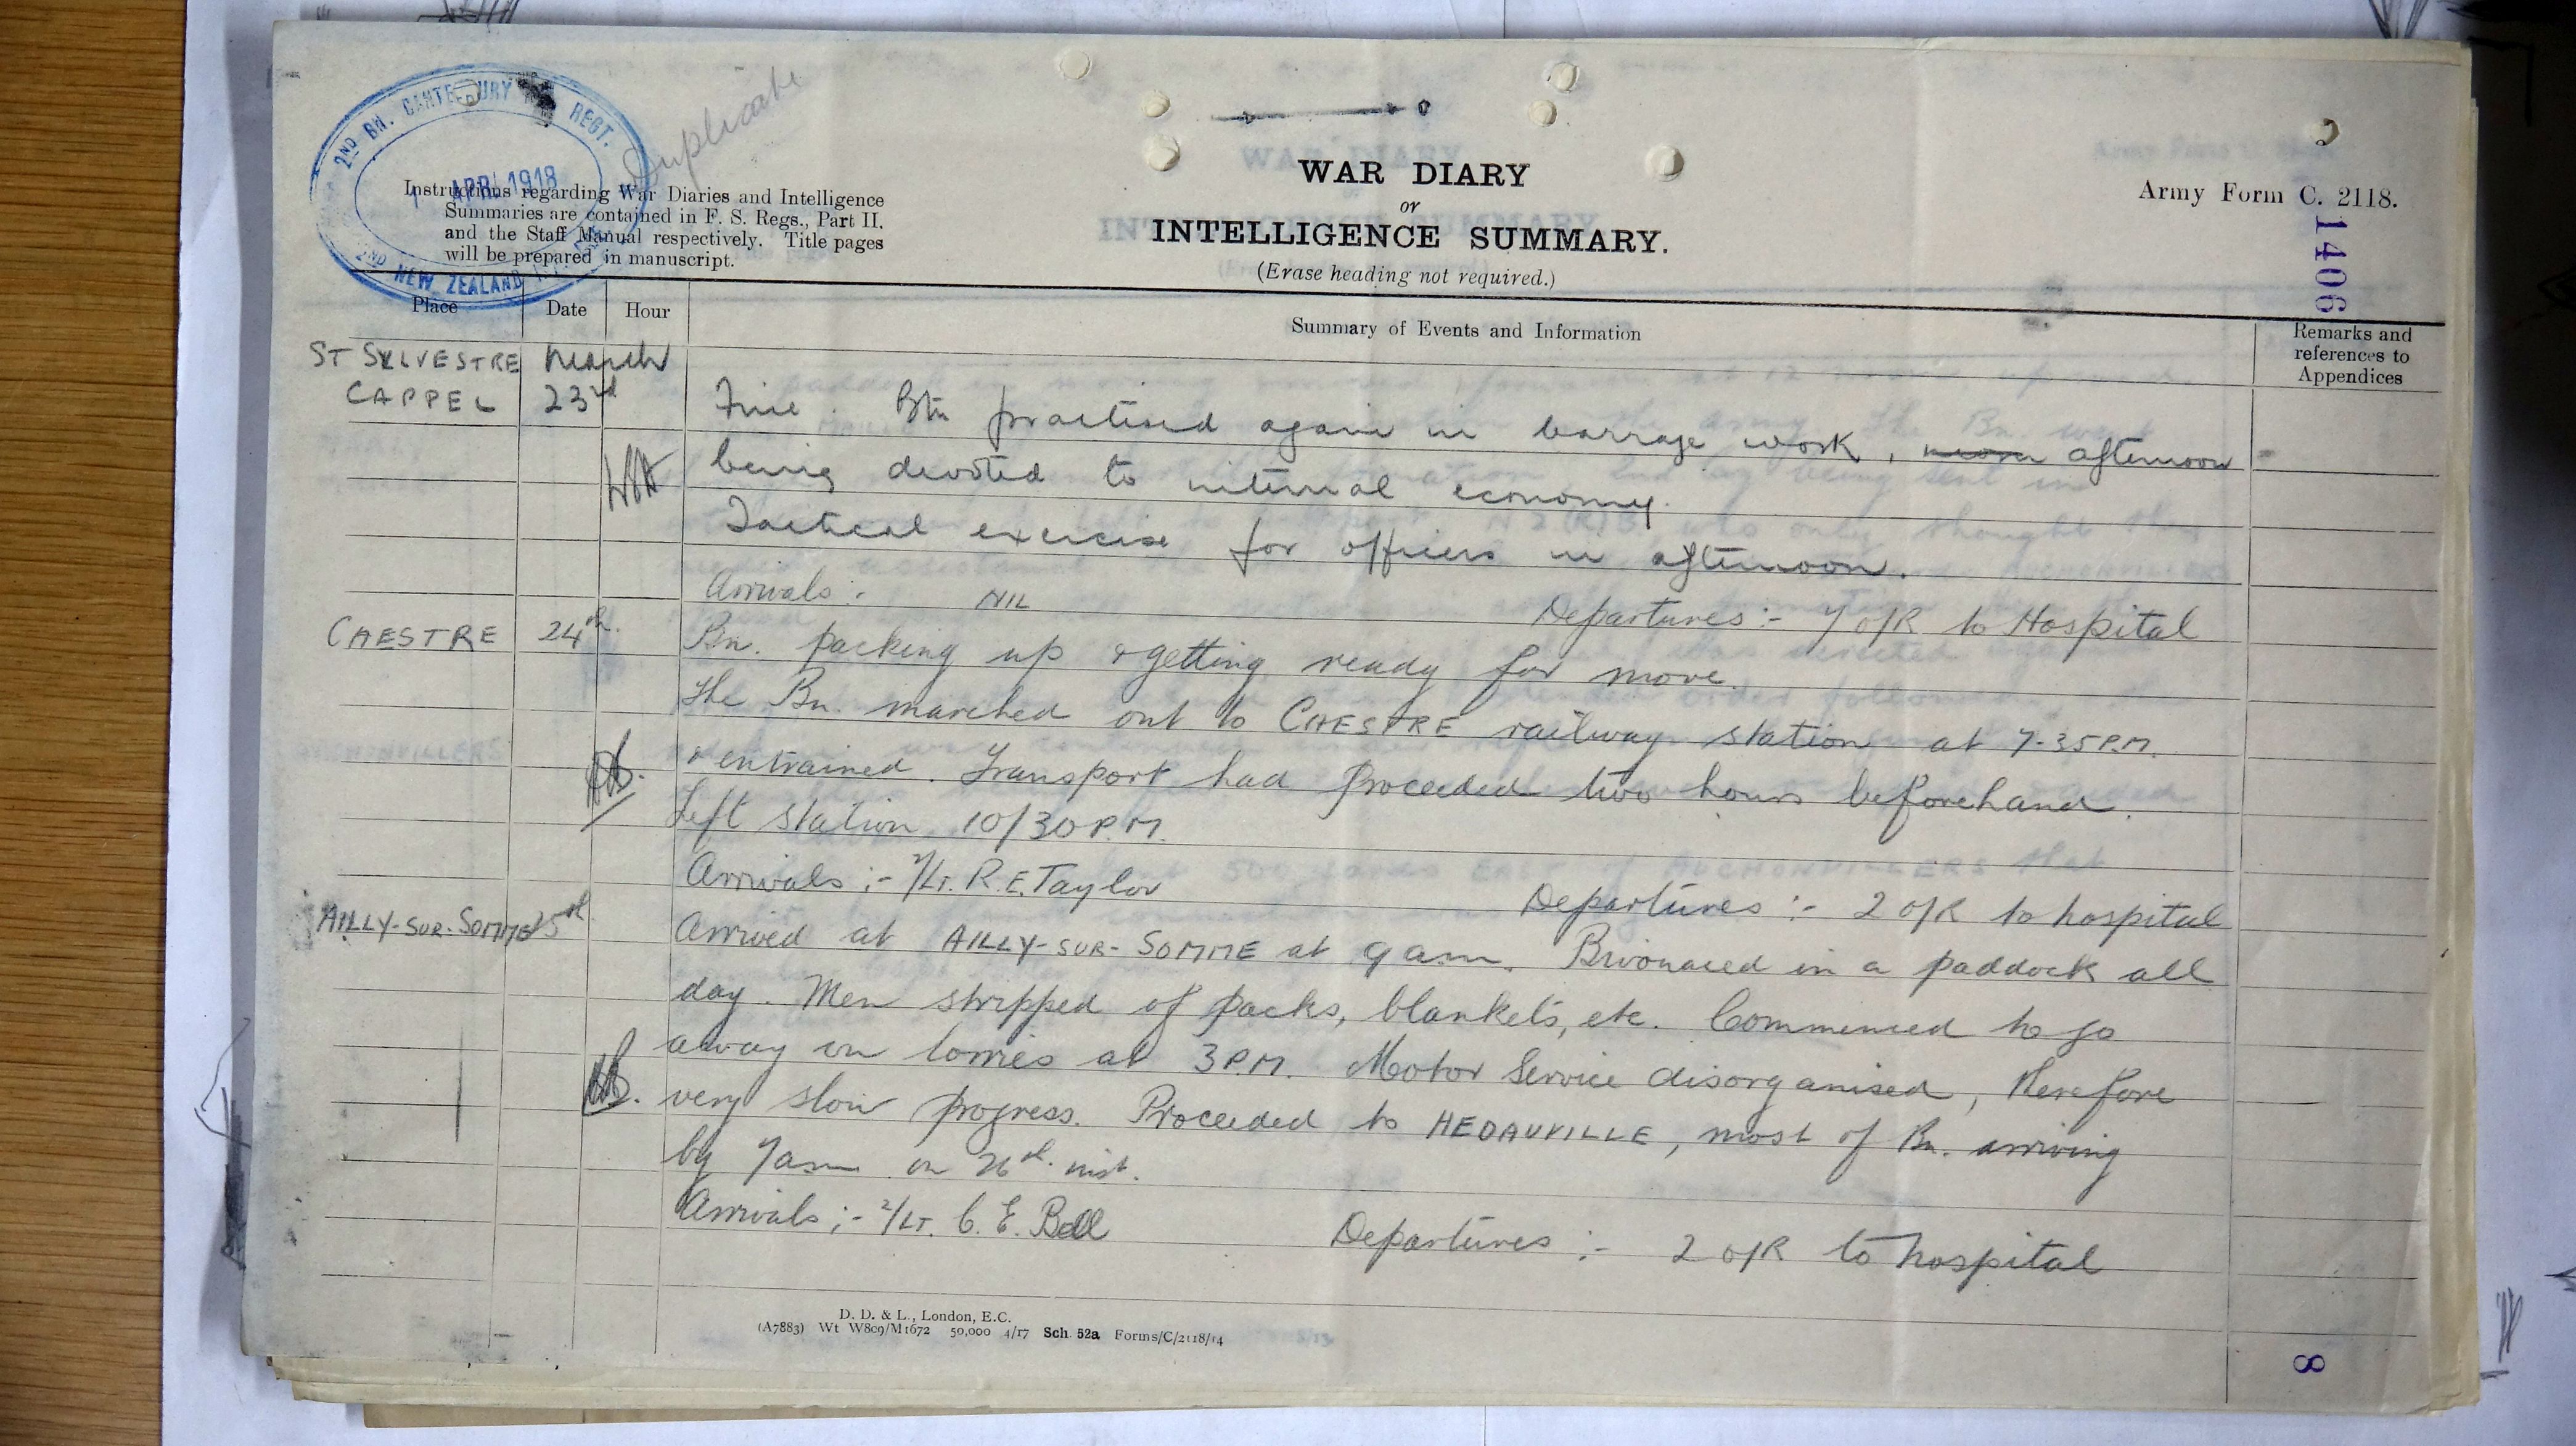 2ND BN. CANTERBURY REGT.
1 APR 1918
2ND NEW ZEALAND
Duplicate
Instructions regarding War Diaries and Intelligence
Summaries are contained in F. S. Regs., Part II.
and the Staff Manual respectively. Title pages
will be prepared in manuscript.
WAR DIARY
or
INTELLIGENCE SUMMARY.
(Erase heading not required.)
Army Form C. 2118.
1406
Place Date Hour Summary of Events and Information Remarks and
references to
Appendices
ST SYLVESTRE March
CAPPEL 23rd Fine. Btn practised again in barrage work, afternoon
being devoted to internal economy.
Tactical exercise for officers in afternoon.
Arrivals :- NIL Departures :- 7 O/R to Hospital
CAESTRE 24th. Bn. packing up & getting ready for move.
The Bn. marched out to CAESTRE railway station at 7-35 P.M.
& entrained. Transport had proceeded two hours beforehand.
Left station 10/30 P.M.
Arrivals :- 2/Lt. R. E. Taylor Departures :- 2 O/R to hospital
AILLY-SUR-SOMME 25th Arrived at AILLY-SUR-SOMME at 9 am. Bivouaced in a paddock all
day. Men stripped of packs, blankets, etc. Commenced to go
away in lorries at 3 P.M. Motor Service disorganised, therefore
very slow progress. Proceeded to HEDAUVILLE, most of Bn. arriving
by 7 am on 26th inst.
Arrivals :- 2/Lt. C. E. Bell Departures :- 2 O/R to hospital
D. D. & L., London, E.C.
(A7883) Wt W809/M1672 50,000 4/17 Sch. 52a Forms/C/2118/14
8